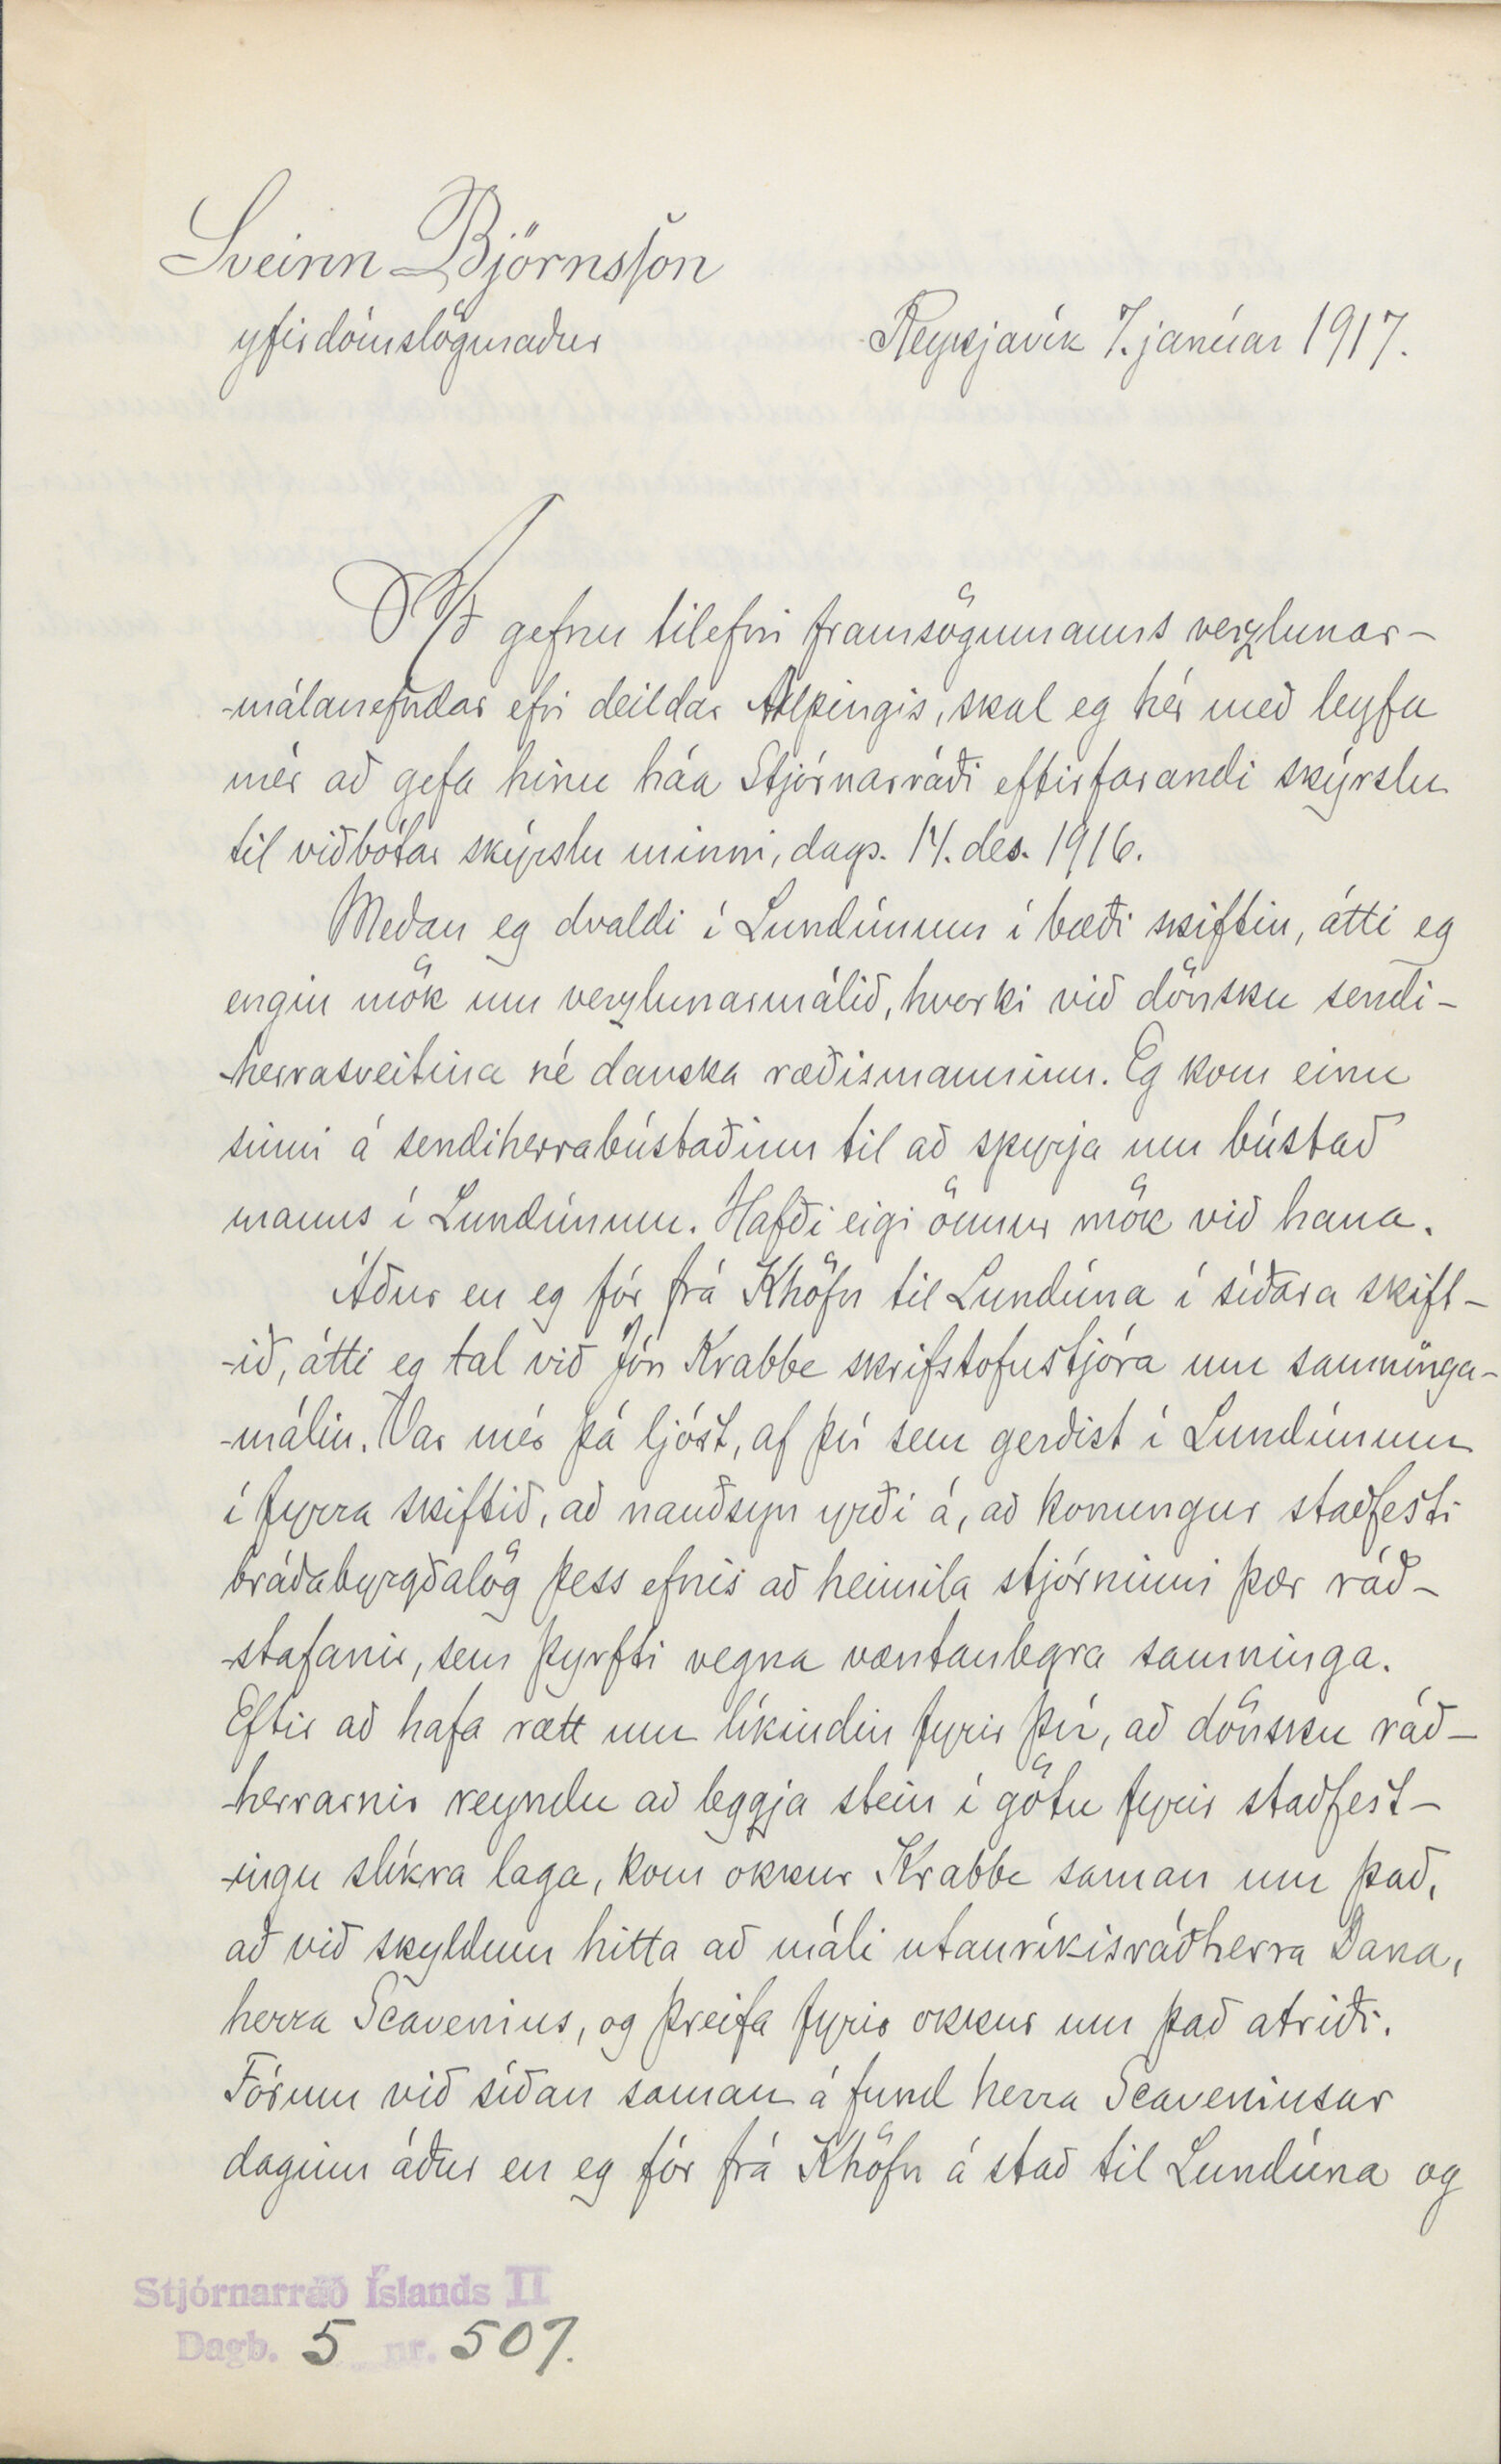 Sveinn Björnsson
yfirdómslögmaður
Reykjavík 7. janúar 1917.
Að gefnu tilefni framsögumanns verzlunar-
-málanefndar efri deildar Alþingis, skal eg hér með leyfa
mér að gefa hinu háa Stjórnarráði eftirfarandi skýrslu
til viðbótar skýrslu minni, dags. 14. des. 1916.
Meðan eg dvaldi í Lundúnum í bæði skiftin, átti eg
engin mök um verzlunarmálið, hvorki við dönsku sendi-
-herrasveitina né danska ræðismanninn. Eg kom einu
sinni á sendiherrabústaðinn til að spyrja um bústað
manns í Lundúnum. Hafði eigi önnur mök við hana.
Áður en eg fór frá Khöfn til Lundúna í síðara skift-
-ið, átti eg tal við Jón Krabbe skrifstofustjóra um samninga-
-málin. Var mér þá ljóst, af því sem gerðist í Lundúnum
í fyrra skiftið, að nauðsyn yrði á, að konungur staðfesti
bráðabyrgðalög þess efnis að heimila stjórninni þær ráð-
-stafanir, sem þyrfti vegna væntanlegra samninga.
Eftir að hafa rætt um líkindin fyrir því, að dönsku ráð-
-herrarnir reyndu að leggja stein í götu fyrir staðfest-
-ingu slíkra laga, kom okkur Krabbe saman um það,
að við skyldum hitta að máli utanríkisráðherra Dana,
herra Scavenius, og þreifa fyrir okkur um það atriði.
Fórum við síðan saman á fund herra Scaveniusar
daginn áður en eg fór frá Khöfn á stað til Lundúna og
Stjórnarráð Íslands II
Dagb. 5 nr. 507.